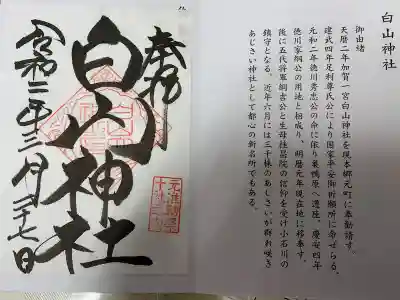 白山神社
御由緒
天暦二年加賀一宮白山神社を現本郷元町に奉勧請す。
建武四年足利尊氏公により国家平安御祈願所に命ぜらる。
元和二年徳川秀忠公の命に依り巣鴨原へ遷座。慶安四年
徳川家綱公の用地と相成り、明暦元年現在地に移奉す。
後に五代将軍綱吉公と生母桂昌院の信仰を受け小石川の
鎮守となる。近年六月には三千株のあじさいが群れ咲き
あじさい神社として都心の新名所でもある。
奉拝
白山神社
令和二年三月二十七日
元准勅祭
十社之内